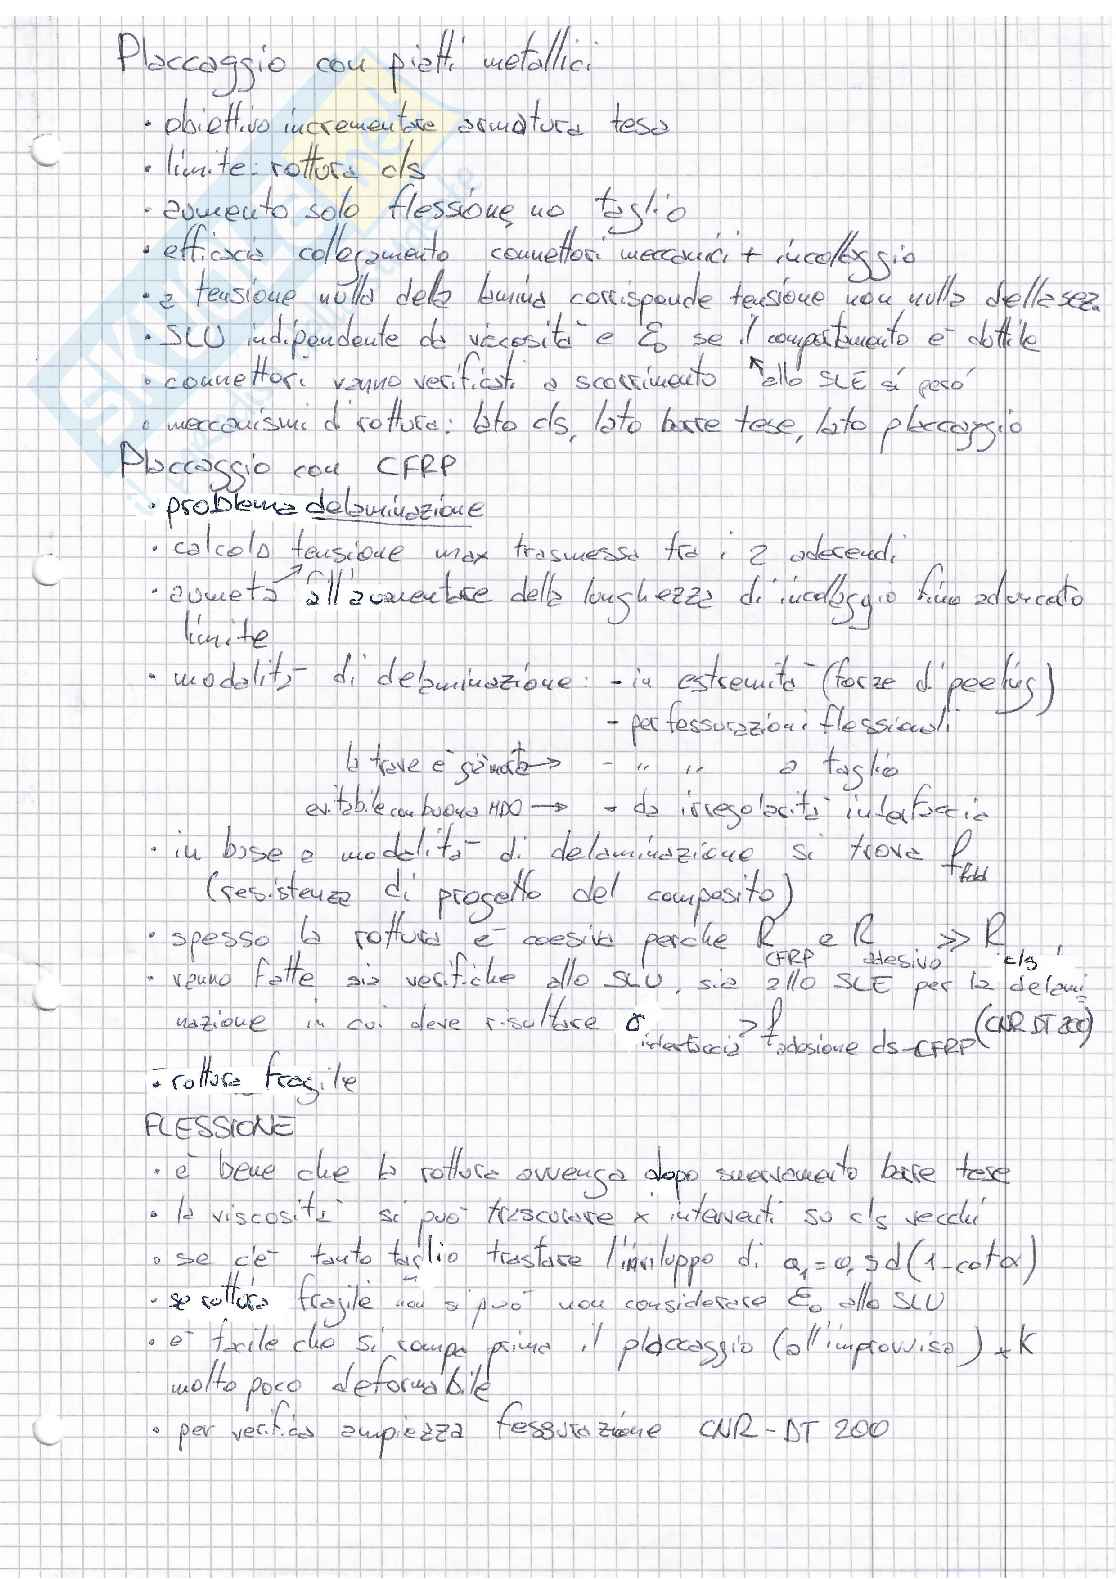 Placcaggio con piatti metallici
• obiettivo incrementare armatura tesa
• limite: rottura cls
• aumento solo flessione, no taglio
• efficacia collegamento connettori meccanici + incollaggio
• a tensione nulla della lamina corrisponde tensione non nulla della sez.
• SLU indipendente da viscosità e ε₀ se il comportamento è duttile
• connettori vanno verificati a scorrimento allo SLE sì però
• meccanismi di rottura: lato cls, lato barre tese, lato placcaggio
Placcaggio con CFRP
• problema delaminazione
• calcolo tensione max trasmessa tra i 2 aderendi
• aumeta all'aumentare della lunghezza di incollaggio fino ad un certo
limite
• modalità di delaminazione: - in estremità (forze di peeling)
- per fessurazioni flessionali
la trave è già morta → - " " a taglio
evitabile con buona MDO → - da irregolarità interfaccia
• in base a modalità di delaminazione si trova f_fdd
(resistenza di progetto del composito)
• spesso la rottura è coesiva perché R_CFRP e R_adesivo ≫ R_cls
• vanno fatte sia verifiche allo SLU, sia allo SLE per la delami
nazione in cui deve risultare σ_interfaccia > f_adesione cls-CFRP (CNR DT 200)
• rottura fragile
FLESSIONE
• è bene che la rottura avvenga dopo snervamento barre tese
• la viscosità si può trascurare x interventi su cls vecchi
• se c'è tanto taglio traslare l'inviluppo di a₁ = 0,9d(1-cotα)
• se rottura fragile non si può non considerare ε₀ allo SLU
• è facile che si rompa prima il placcaggio (all'improvviso) + K
molto poco deformabile
• per verifica ampiezza fessurazione CNR-DT 200